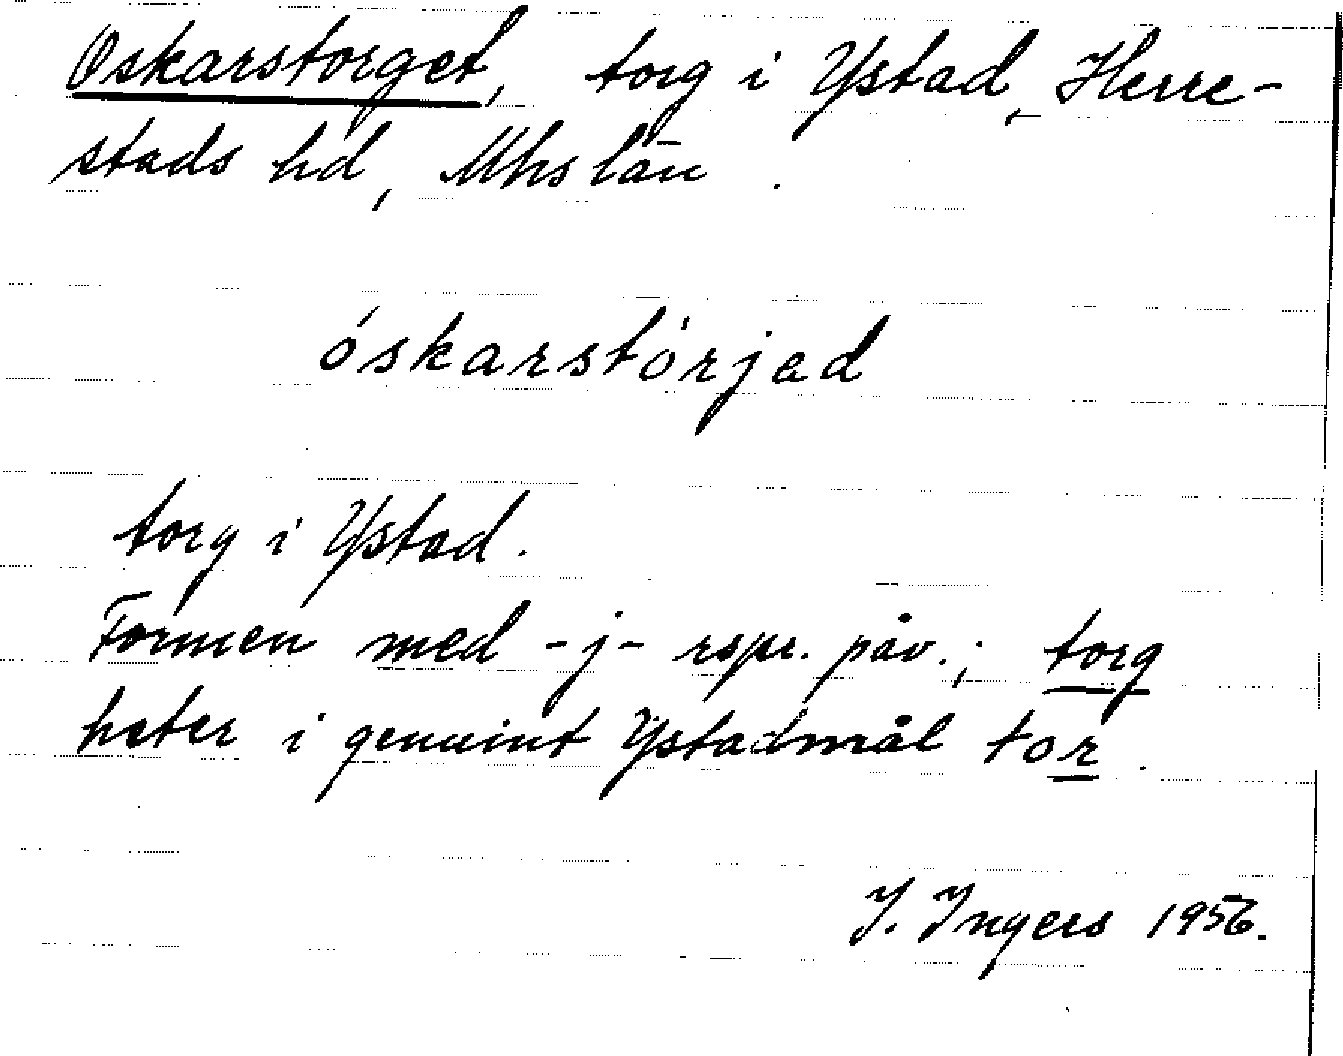 Oskarstorget, torg i Ystad, Herre-
stads hd, Mhs län.
óskarstòrjad
torg i Ystad.
Formen med -j- rspr. påv.; torg
heter i genuint Ystadmål tor.
I. Ingers 1956.